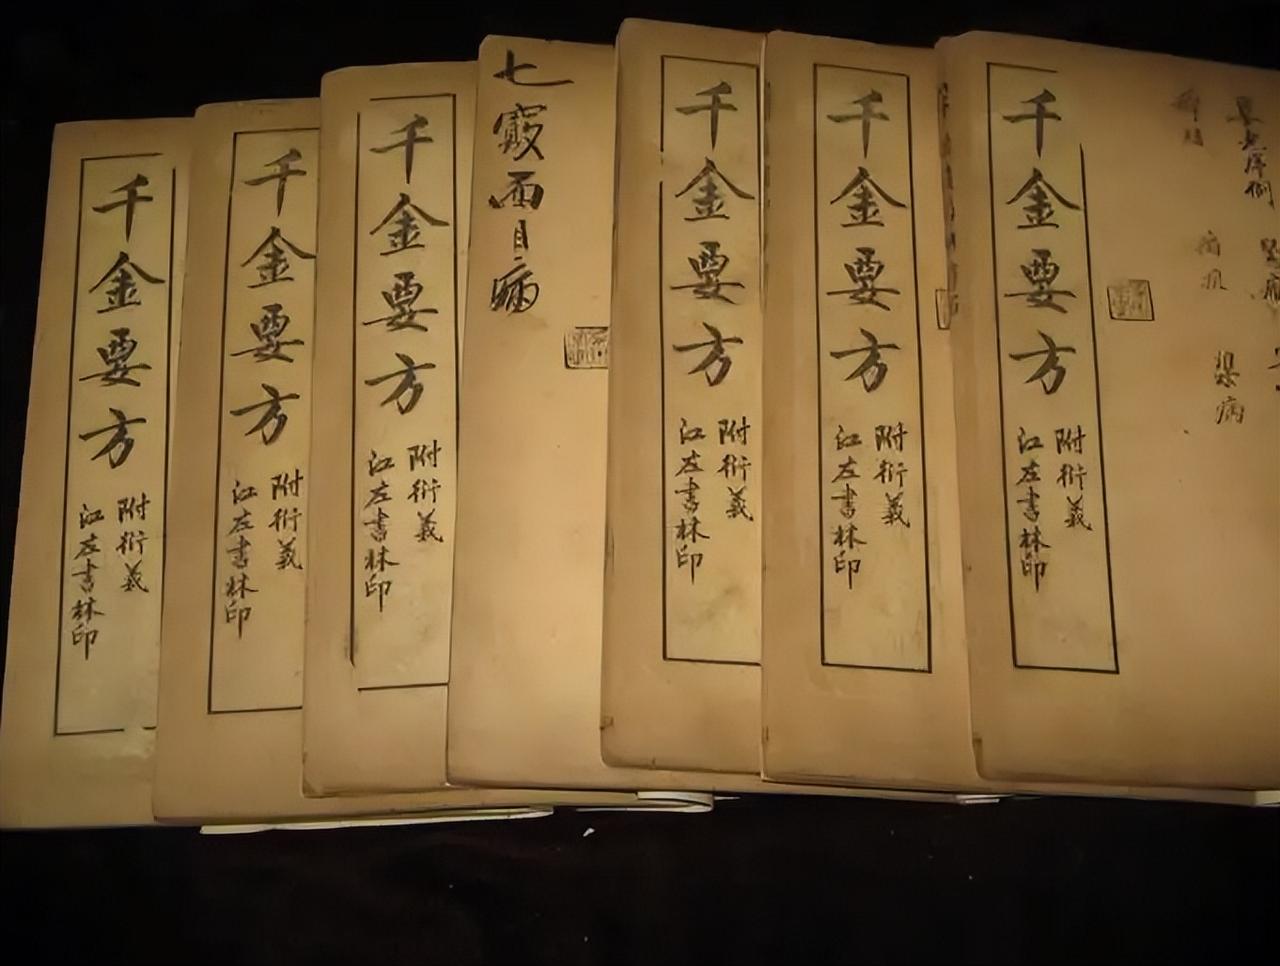 千金要方
附衍義
江左書林印
千金要方
附衍義
江左書林印
千金要方
附衍義
江左書林印
七竅面目病
千金要方
附衍義
江左書林印
千金要方
附衍義
江左書林印
千金要方
附衍義
江左書林印